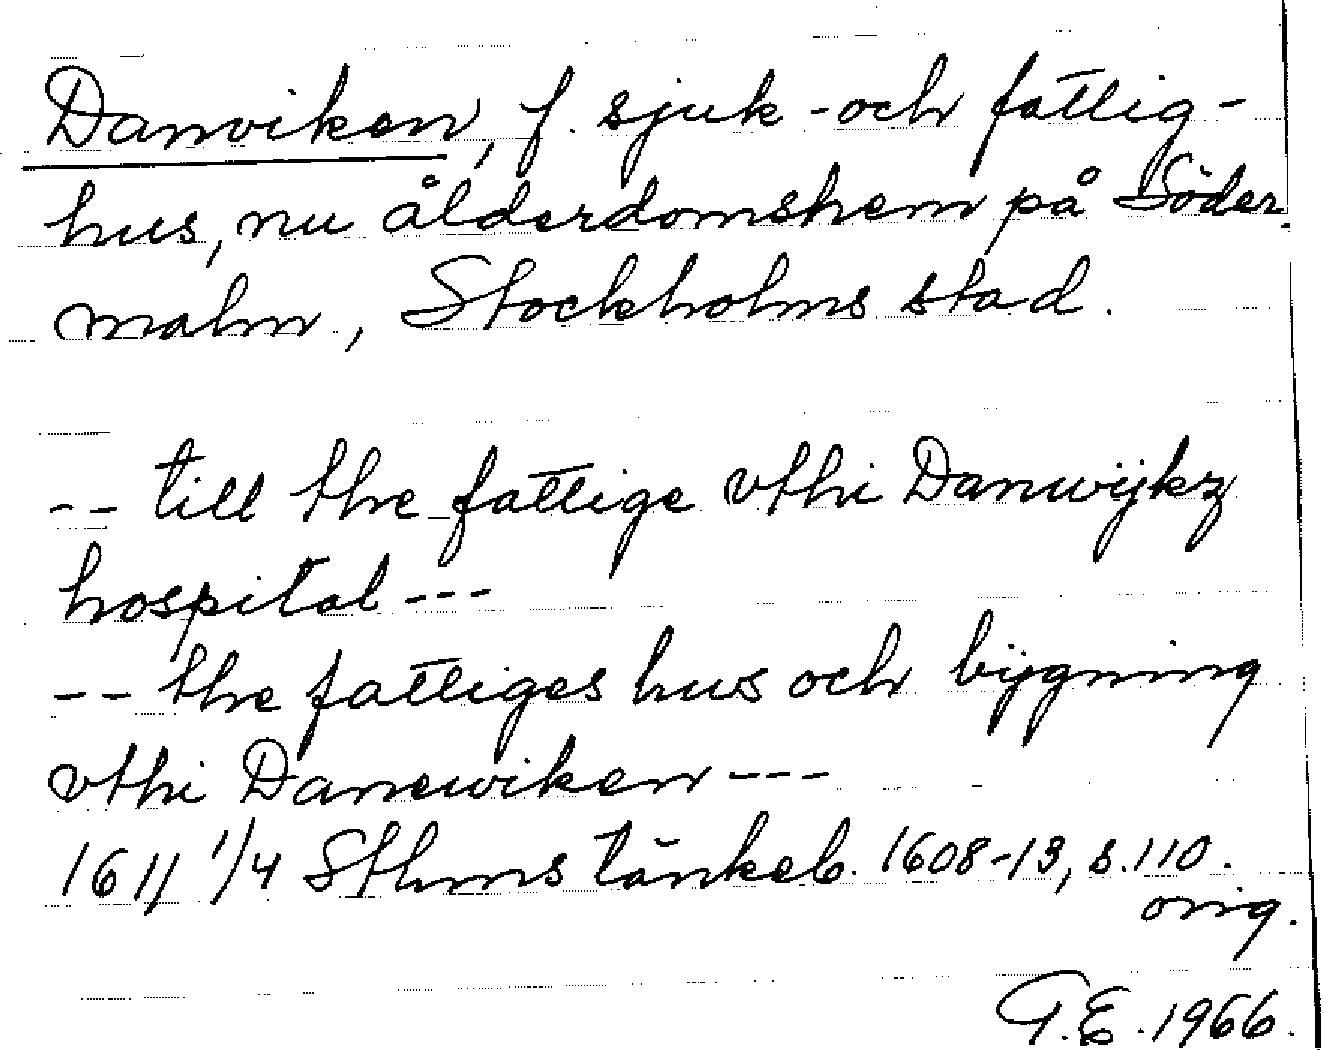 Danviken, f. sjuk- och fattig-
hus, nu ålderdomshem på Söder-
malm, Stockholms stad.
-- till the fattige vthi Danwijkz
hospital ---
-- the fattiges hus och bÿgning
vthi Danewiken ---
1611 1/4 Sthms tänkeb. 1608-13, s. 110.
orig.
G.E. 1966.